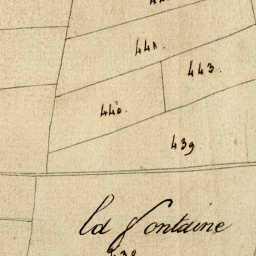 441.
443.
440.
439
la fontaine
438